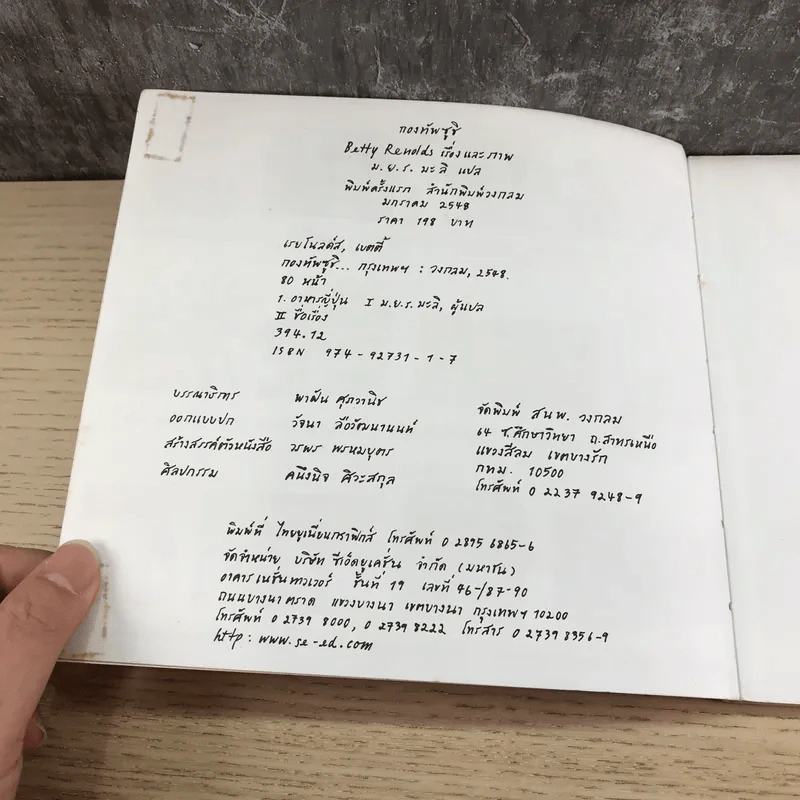 กองทัพซูชิ
Betty Renolds เรื่องและภาพ
ม.ย.ร. มะลิ แปล
พิมพ์ครั้งแรก สำนักพิมพ์วงกลม
มกราคม 2548
ราคา 198 บาท
เรยโนลด์ส, เบตตี้
กองทัพซูชิ... กรุงเทพฯ : วงกลม, 2548.
80 หน้า
1. อาหารญี่ปุ่น I ม.ย.ร. มะลิ, ผู้แปล
II ชื่อเรื่อง
394.12
ISBN 974-92731-1-7
บรรณาธิการ พาฝัน ศุภวานิช
ออกแบบปก วัจนา ลือวัฒนานนท์
สร้างสรรค์ตัวหนังสือ วรพร พรหมบุตร
ศิลปกรรม คนึงนิจ ศิวะสกุล
จัดพิมพ์ สนพ. วงกลม
64 ซ.ศึกษาวิทยา ถ.สาทรเหนือ
แขวงสีลม เขตบางรัก
กทม. 10500
โทรศัพท์ 0 2237 9248-9
พิมพ์ที่ ไทยยูเนี่ยนกราฟิกส์ โทรศัพท์ 0 2895 6865-6
จัดจำหน่าย บริษัท ซีเอ็ดยูเคชั่น จำกัด (มหาชน)
อาคารเนชั่นทาวเวอร์ ชั้นที่ 19 เลขที่ 46-/87-90
ถนนบางนาตราด แขวงบางนา เขตบางนา กรุงเทพฯ 10200
โทรศัพท์ 0 2739 8000, 0 2739 8222 โทรสาร 0 2739 8356-9
http : www.se-ed.com